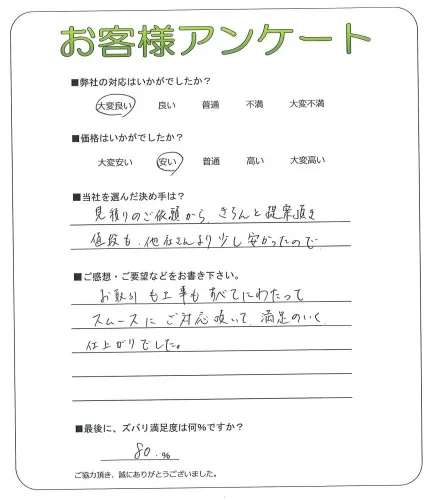 お客様アンケート
■弊社の対応はいかがでしたか?
大変良い 良い 普通 不満 大変不満
■価格はいかがでしたか?
大変安い 安い 普通 高い 大変高い
■当社を選んだ決め手は?
見積りのご依頼から、きちんと提案頂き
値段も、他社さんより少し安かったので
■ご感想・ご要望などをお書き下さい。
お取引も工事もすべてにわたって
スムースにご対応頂いて満足のいく
仕上がりでした。
■最後に、ズバリ満足度は何%ですか?
80.%
ご協力頂き、誠にありがとうございました。